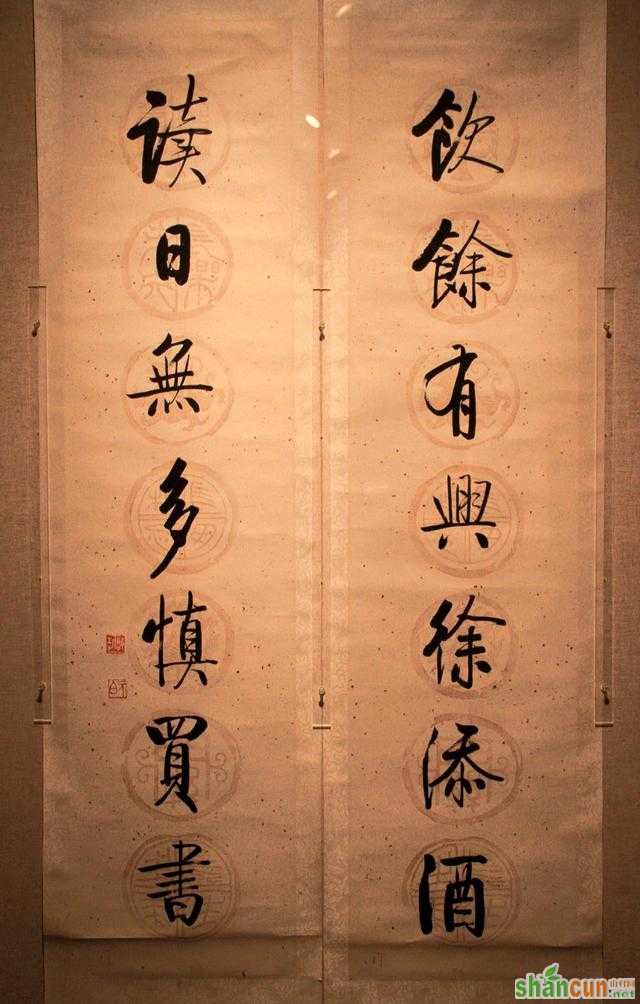 飲餘有興徐添酒
讀日無多慎買書
shancun
.net